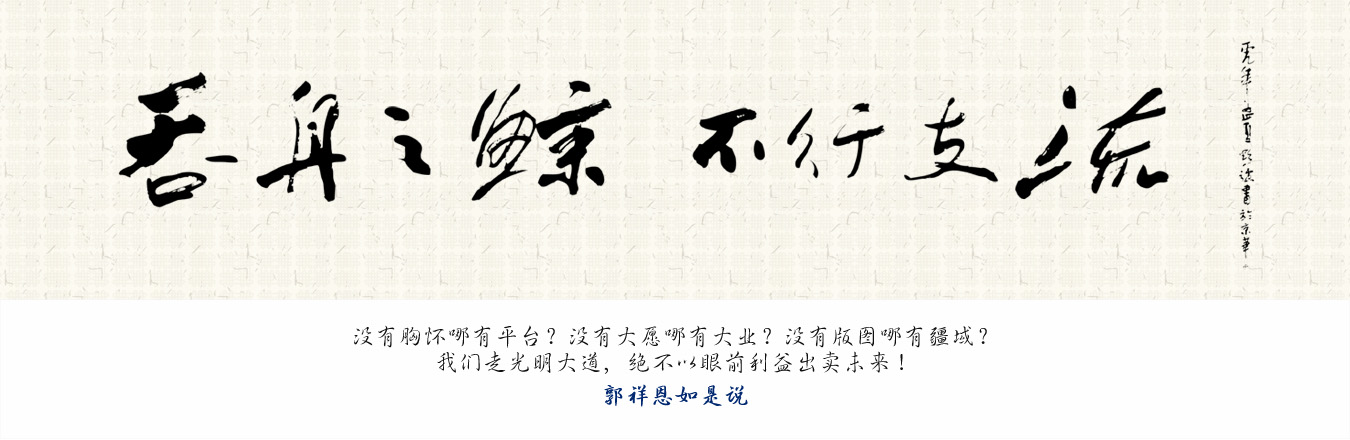 吞舟之鲸 不行支流
没有胸怀哪有平台？没有大愿哪有大业？没有版图哪有疆域？
我们走光明大道，绝不以眼前利益出卖未来！
郭祥恩如是说